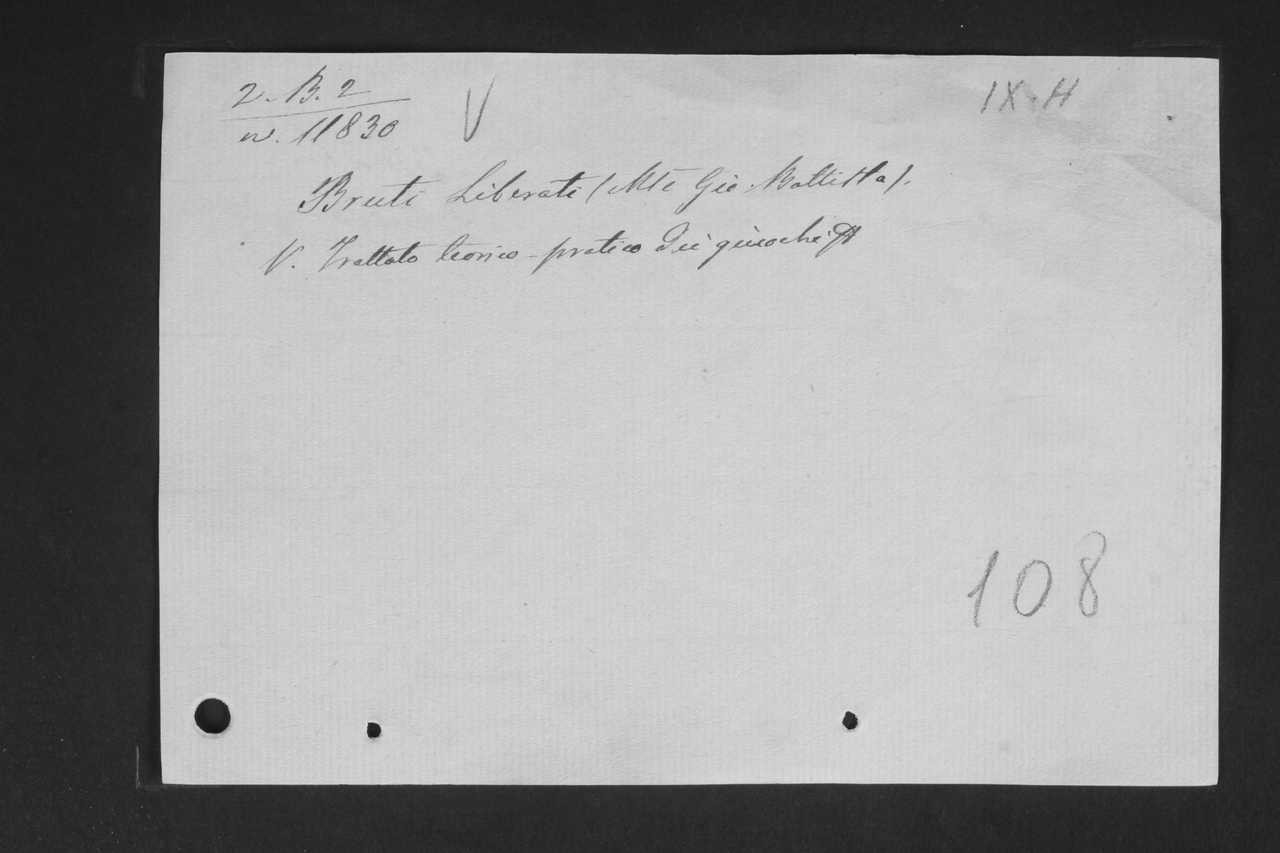 2. B. 2 V IX. H
n. 11830
Bruti Liberati (Mse Gio. Battista).
V. Trattato teorico-pratico dei giuochi
108